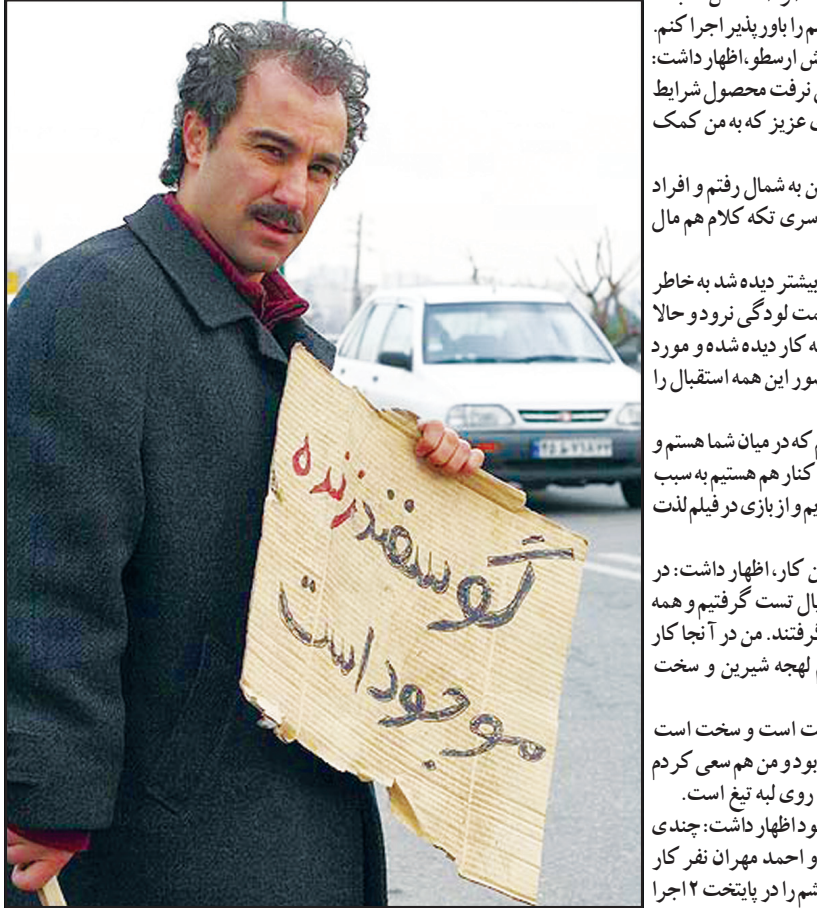 م را باورپذیر اجرا کنم.
ش ارسطو،اظهار داشت:
نرفت محصول شرایط
عزیز که به من کمک
ن به شمال رفتم و افراد
سری تکه کلام هم مال
بیشتر دیده شد به خاطر
مت لودگی نرود و حالا
ه کار دیده شده و مورد
صور این همه استقبال را
م که در میان شما هستم و
کنار هم هستیم به سبب
یم و از بازی در فیلم لذت
ن کار، اظهار داشت: در
بال تست گرفتیم و همه
گرفتند. من در آنجا کار
لهجه شیرین و سخت
ت است و سخت است
بود و من هم سعی کردم
روی لبه تیغ است.
ود اظهار داشت: چندی
و احمد مهران نفر کار
شم را در پایتخت ۲ اجرا
گوسفند زنده
موجود است